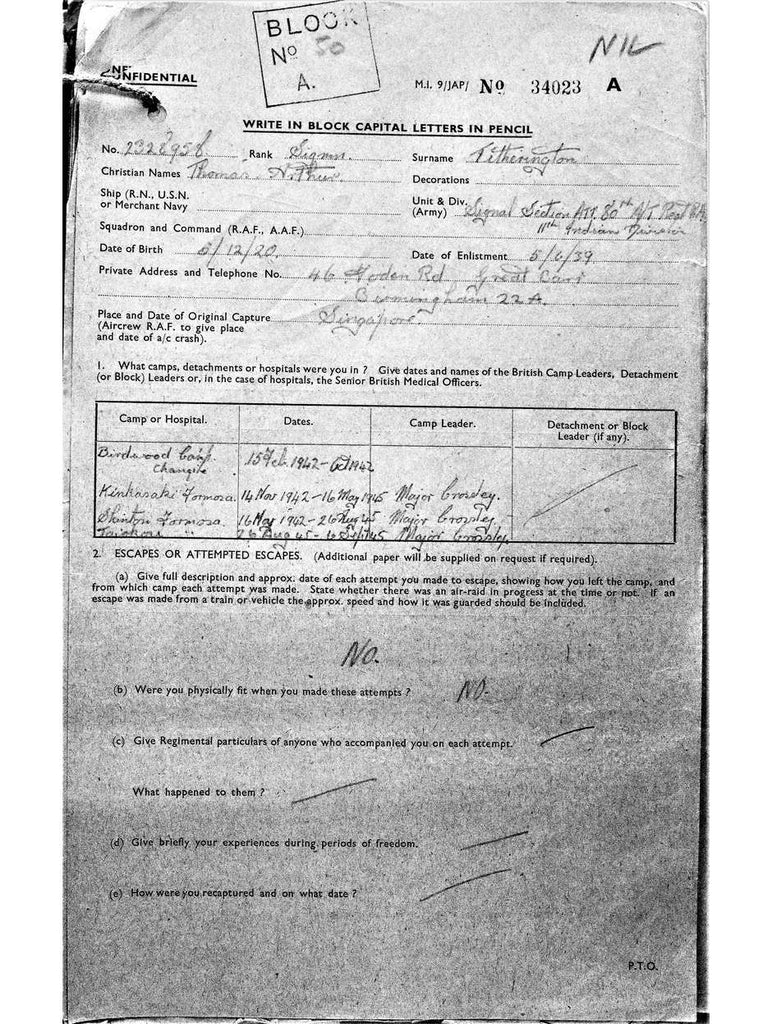 BLOCK
Nº 50
A.
NIL
CONFIDENTIAL
M.I. 9/JAP/ Nº 34023 A
WRITE IN BLOCK CAPITAL LETTERS IN PENCIL
No. 2328958 Rank Signmn. Surname Titherington
Christian Names Thomas Arthur. Decorations
Ship (R.N., U.S.N.
or Merchant Navy
Unit & Div.
(Army) Signal Section Att. 80th A/T Regt R.A.
11th Indian Division
Squadron and Command (R.A.F., A.A.F.)
Date of Birth 5/12/20. Date of Enlistment 5/6/39
Private Address and Telephone No. 46 Rd Great Barr
Birmingham 22A.
Place and Date of Original Capture Singapore
(Aircrew R.A.F. to give place
and date of a/c crash).
1. What camps, detachments or hospitals were you in ? Give dates and names of the British Camp Leaders, Detachment
(or Block) Leaders or, in the case of hospitals, the Senior British Medical Officers.
Camp or Hospital. Dates. Camp Leader. Detachment or Block
Leader (if any).
Birdwood Camp. 15 Feb 1942 - Oct 1942
Changi
Kinkasaki Formosa. 14 Nov 1942 - 16 May 1945 Major Crossley.
Shinton Formosa. 16 May 1942 - 26 Aug 45 Major Crossley.
Taiokou " 26 Aug 45 - 6 Sept 45 Major Crossley.
2. ESCAPES OR ATTEMPTED ESCAPES. (Additional paper will be supplied on request if required).
(a) Give full description and approx. date of each attempt you made to escape, showing how you left the camp, and
from which camp each attempt was made. State whether there was an air-raid in progress at the time or not. If an
escape was made from a train or vehicle the approx. speed and how it was guarded should be included.
No.
(b) Were you physically fit when you made these attempts ? NO.
(c) Give Regimental particulars of anyone who accompanied you on each attempt.
What happened to them ?
(d) Give briefly your experiences during periods of freedom.
(e) How were you recaptured and on what date ?
P.T.O.